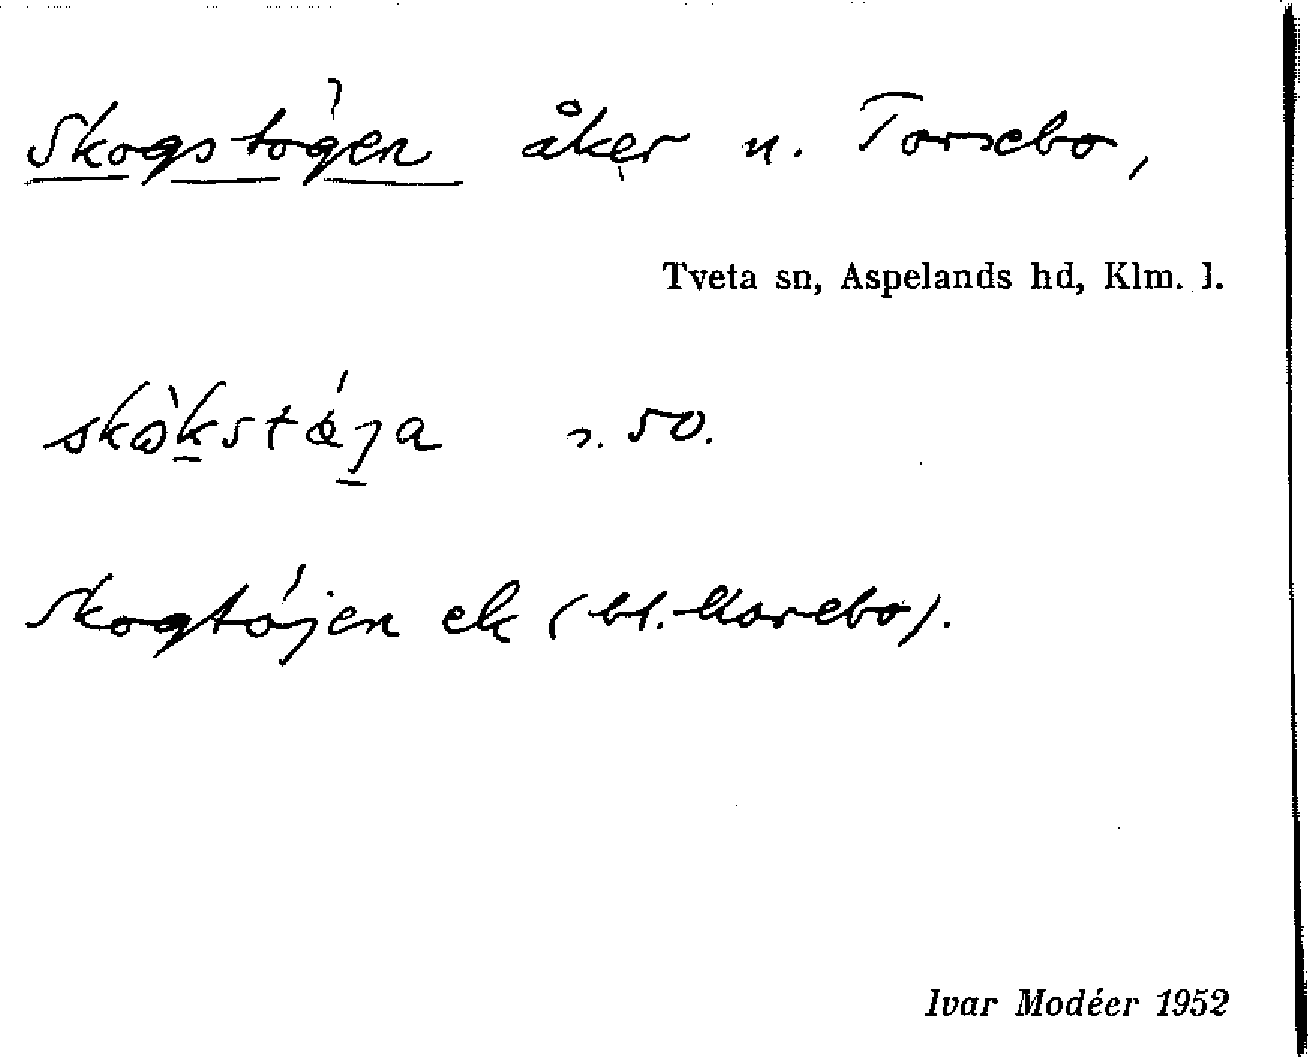 Skogstogen åker n. Torsebo,
Tveta sn, Aspelands hd, Klm. l.
s. 50.
Skogtöjen ek (bl. Korebo).
Ivar Modéer 1952